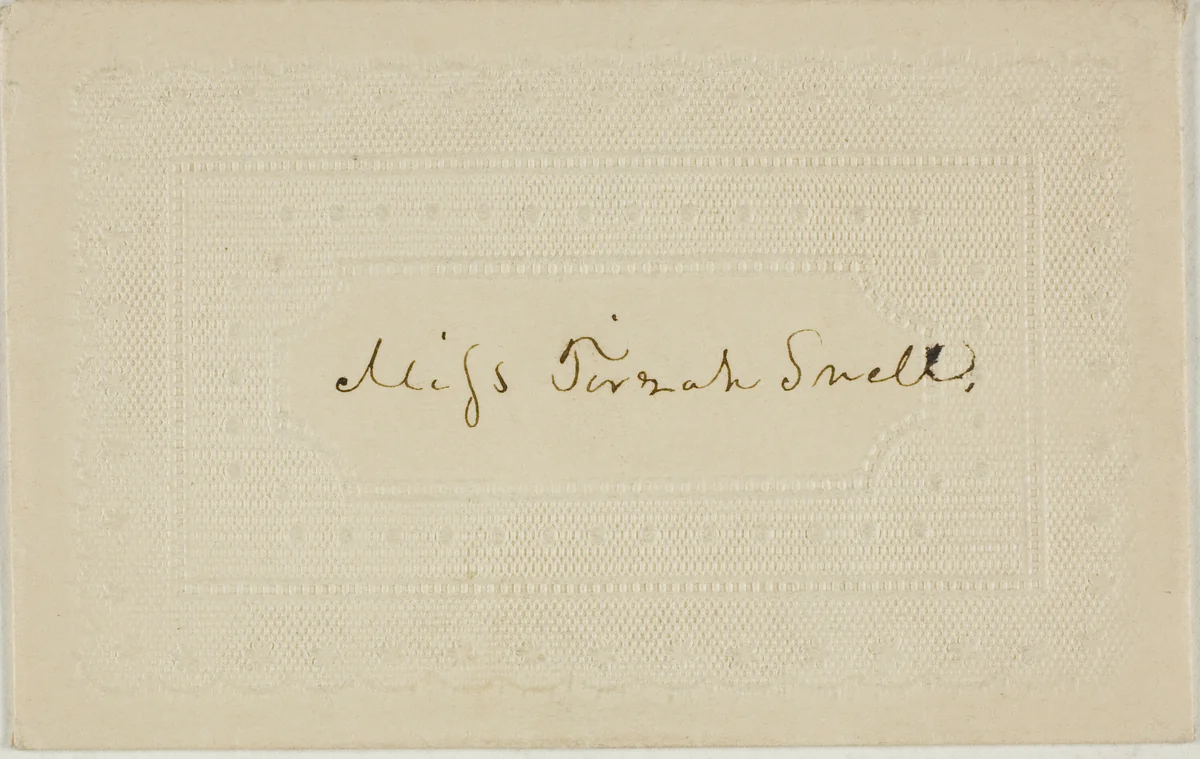 Miſs Tirzah Snell.